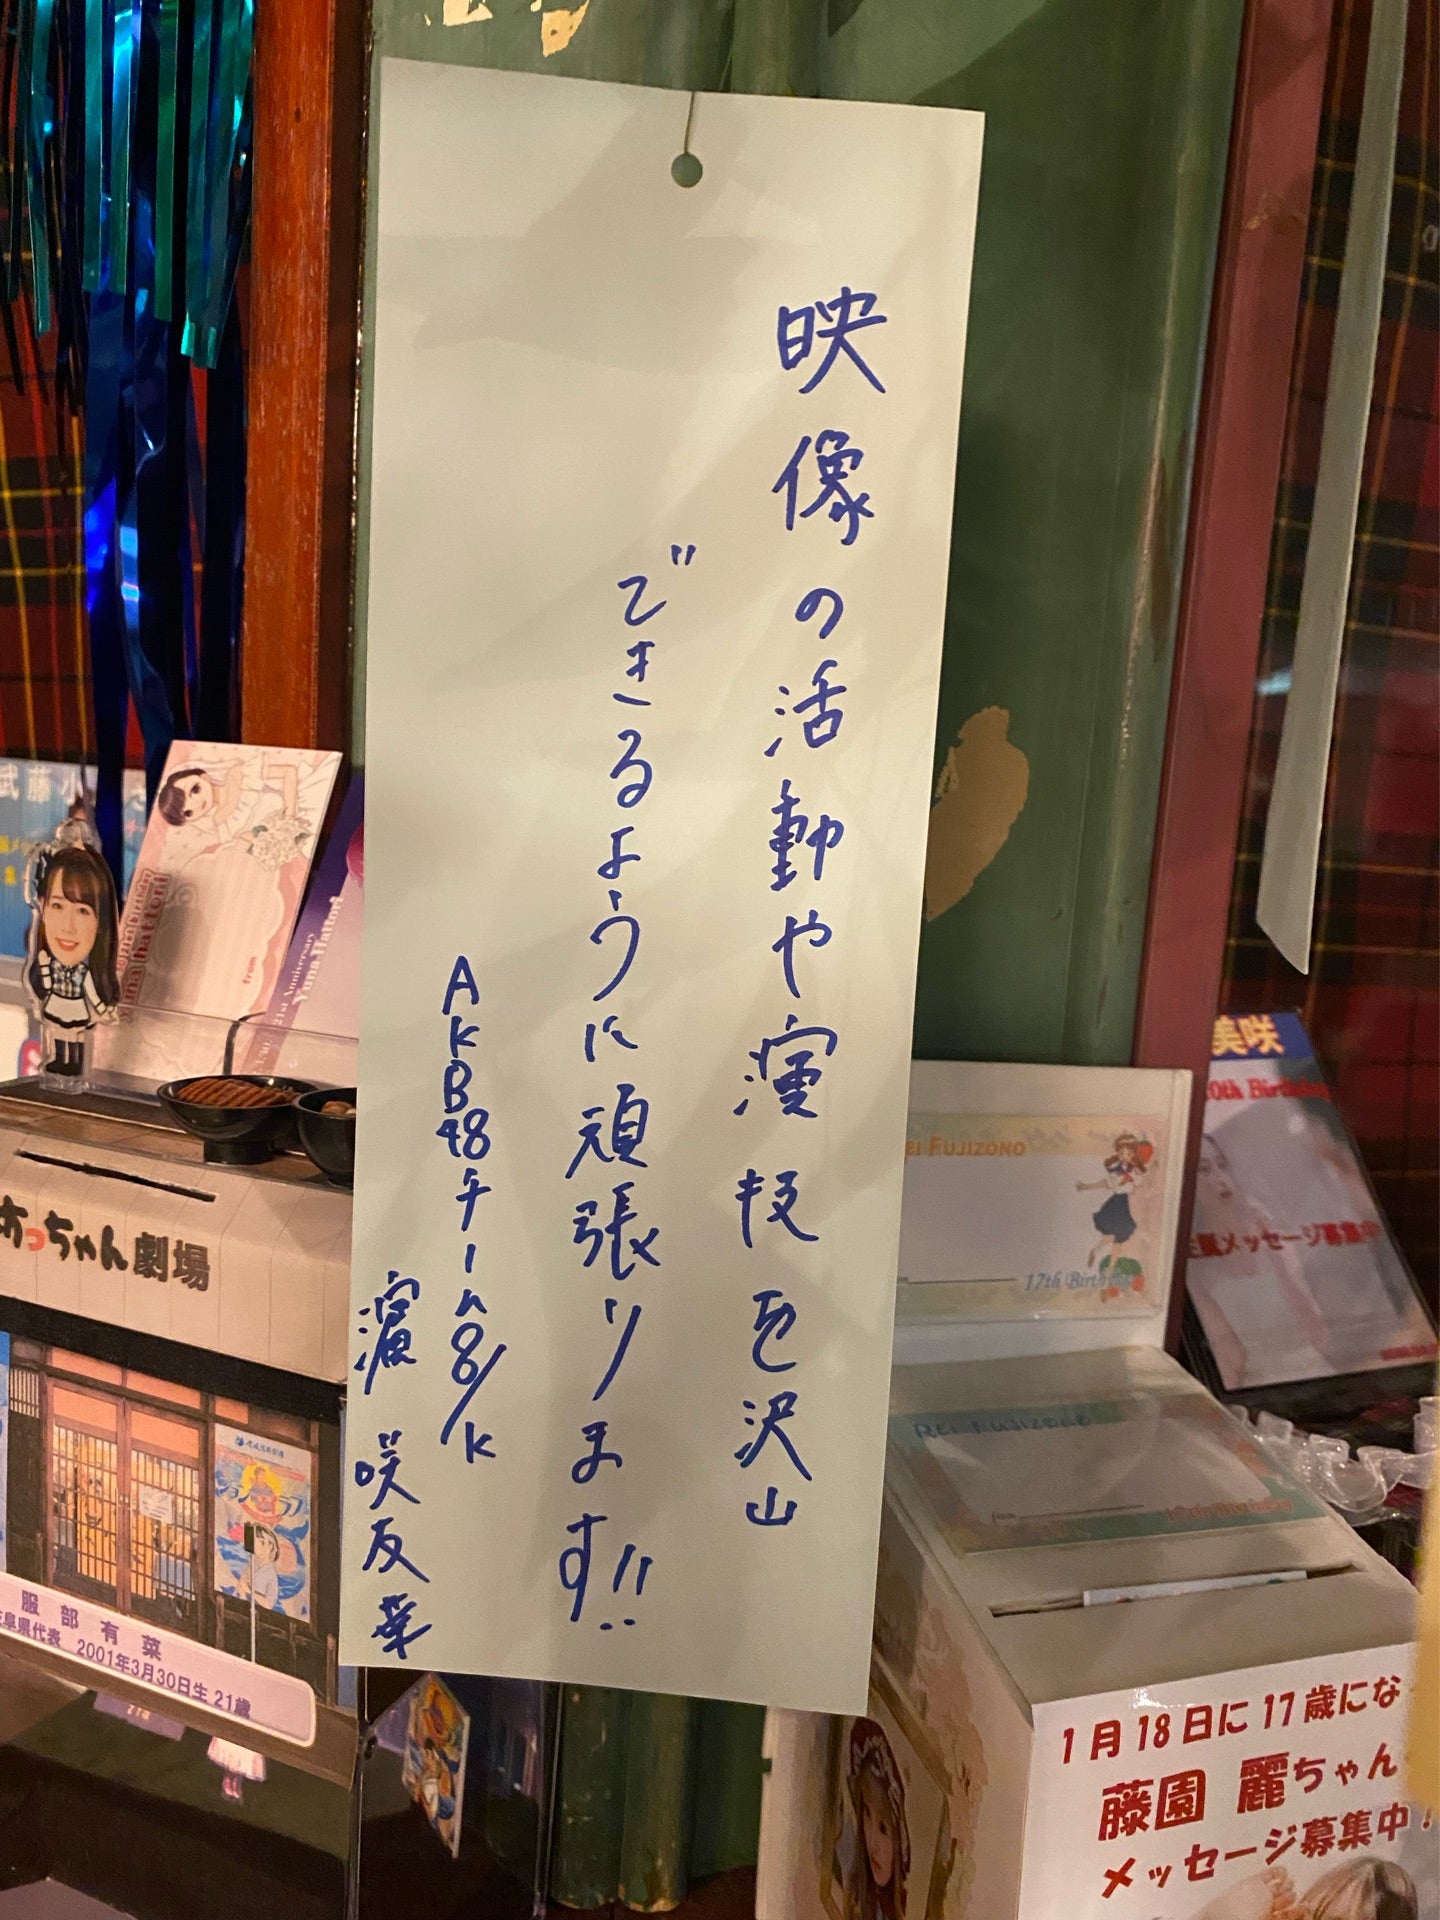 映像の活動や演技を沢山
できるように頑張ります!!
AKB48チーム8/K
濵 咲友菜
武藤 小
una hattori
from
21st Anniversary
Yuna Hattori
あっちゃん劇場
服部有菜
阜県代表 2001年3月30日生 21歳
美咲
0th Birthday
メッセージ募集中
EI FUJIZONO
17th Birthday
REI FUJIZONO
1月18日に17歳にな
藤園 麗ちゃん
メッセージ募集中!